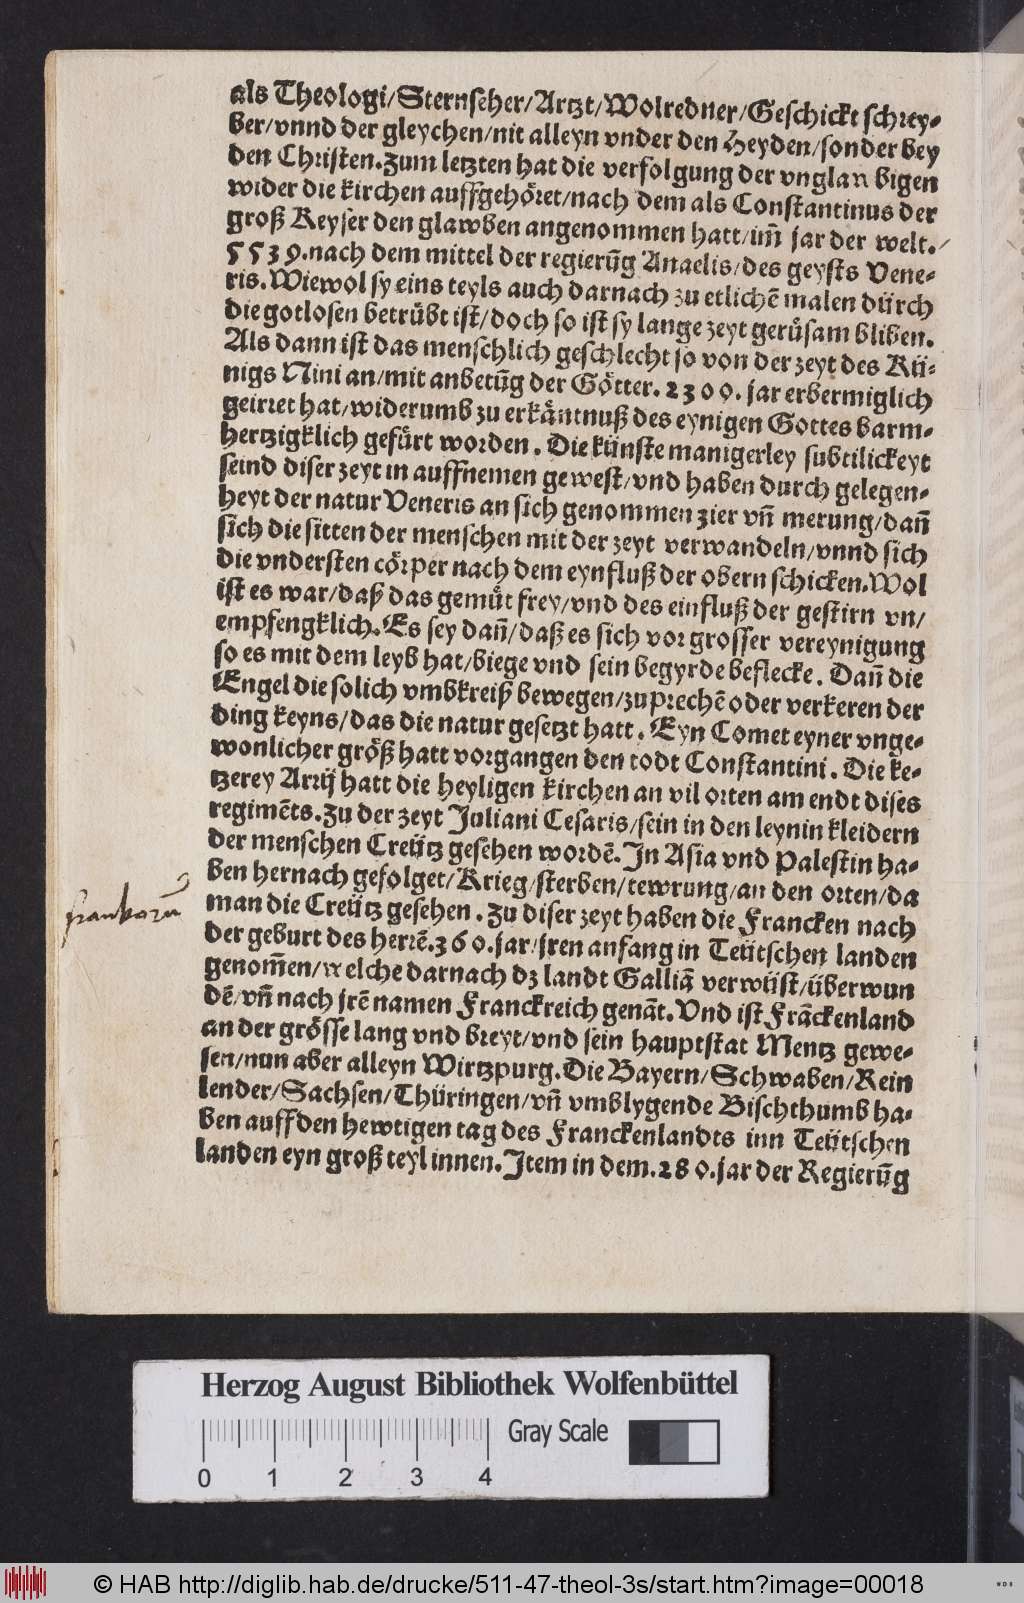 als Theologi/Sternseher/Artzt/Wolredner/Geschickt schrey-
ber/vnnd der gleychen/nit alleyn vnder den Heyden/sonder bey
den Christen. Zum letzten hat die verfolgung der vnglau bigen
wider die kirchen auffgehöret/nach dem als Constantinus der
groß Keyser den glawben angenommen hatt/im̃ jar der welt./
5539. nach dem mittel der regierũg Anaelis/des geysts Vene-
ris. Wiewol sy eins teyls auch darnach zu etlichẽ malen dürch
die gotlosen betrübt ist/doch so ist sy lange zeyt gerůsam bliben.
Als dann ist das menschlich geschlecht so von der zeyt des Kü-
nigs Nini an/mit anbetũg der Götter. 2300. jar erbermiglich
geirret hat/widerumb zu erkäntnuß des eynigen Gottes barm-
hertzigklich gefürt worden. Die künste manigerley subtilickeyt
seind diser zeyt in auffnemen gewest/vnd haben durch gelegen-
heyt der natur Veneris an sich genommen zier vñ merung/dañ
sich die sitten der menschen mit der zeyt verwandeln/vnnd sich
die vndersten cörper nach dem eynfluß der obern schicken. Wol
ist es war/daß das gemüt frey/vnd des einfluß der gestirn vn/
empfengklich. Es sey dañ/daß es sich vor grosser vereynigung
so es mit dem leyb hat/biege vnd sein begyrde beflecke. Dañ die
Engel die solich vmbkreiß bewegen/zuprechẽ oder verkeren der
ding keyns/das die natur gesetzt hatt. Eyn Comet eyner vnge-
wonlicher größ hatt vorgangen den todt Constantini. Die ke-
tzerey Arrij hatt die heyligen kirchen an vil orten am endt dises
regimẽts. Zu der zeyt Juliani Cesaris/sein in den leynin kleidern
der menschen Creütz gesehen wordẽ. In Asia vnd Palestin ha-
ben hernach gefolget/Krieg/sterben/tewrung/an den orten/da
man die Creütz gesehen. Zu diser zeyt haben die Francken nach
der geburt des herrẽ. 360. jar/jren anfang in Teütschen landen
genom̃en/welche darnach dz landt Galliã verwüst/überwun
dẽ/vñ nach jrẽ namen Franckreich genãt. Vnd ist Frãckenland
an der grösse lang vnd breyt/vnd sein hauptstat Mentz gewe-
sen/nun aber alleyn Wirtzpurg. Die Bayern/Schwaben/Rein
lender/Sachsen/Thüringen/vñ vmblygende Bischthumb ha-
ben auff den hewtigen tag des Franckenlandts inn Teütschen
landen eyn groß teyl innen. Item in dem. 280. jar der Regierũg
frankorũ
Herzog August Bibliothek Wolfenbüttel
Gray Scale
0 1 2 3 4
© HAB http://diglib.hab.de/drucke/511-47-theol-3s/start.htm?image=00018